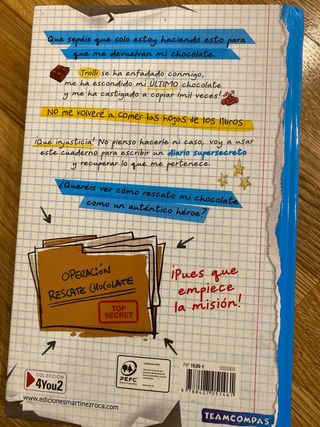 Que sepáis que solo estoy haciendo esto para
que me devuelvan mi chocolate.
Trolli se ha enfadado conmigo,
me ha escondido mi ÚLTIMO chocolate
y me ha castigado a copiar ¡mil veces!
NO ME VOLVERÉ A COMER LAS HOJAS DE LOS LIBROS
¡Qué injusticia! No pienso hacerle ni caso, voy a usar
este cuaderno para escribir un diario supersecreto
y recuperar lo que me pertenece.
¿Queréis ver cómo rescato mi chocolate
como un auténtico héroe?
OPERACIÓN
RESCATE CHOCOLATE
TOP
SECRET
¡Pues que
empiece
la misión!
COLECCIÓN
4You2
www.edicionesmartinezroca.com
PEFC
PVP 10,90 €
9 788427 051461
TEAMCOMPAS